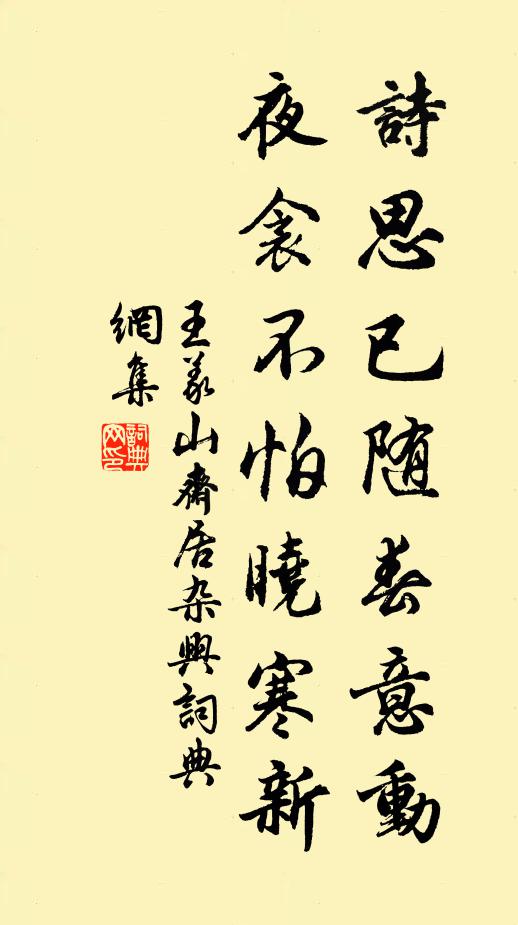 詩思已随春意動
夜衾不怕曉寒新
王義山齋居杂興詞典
網集
詞典
网印